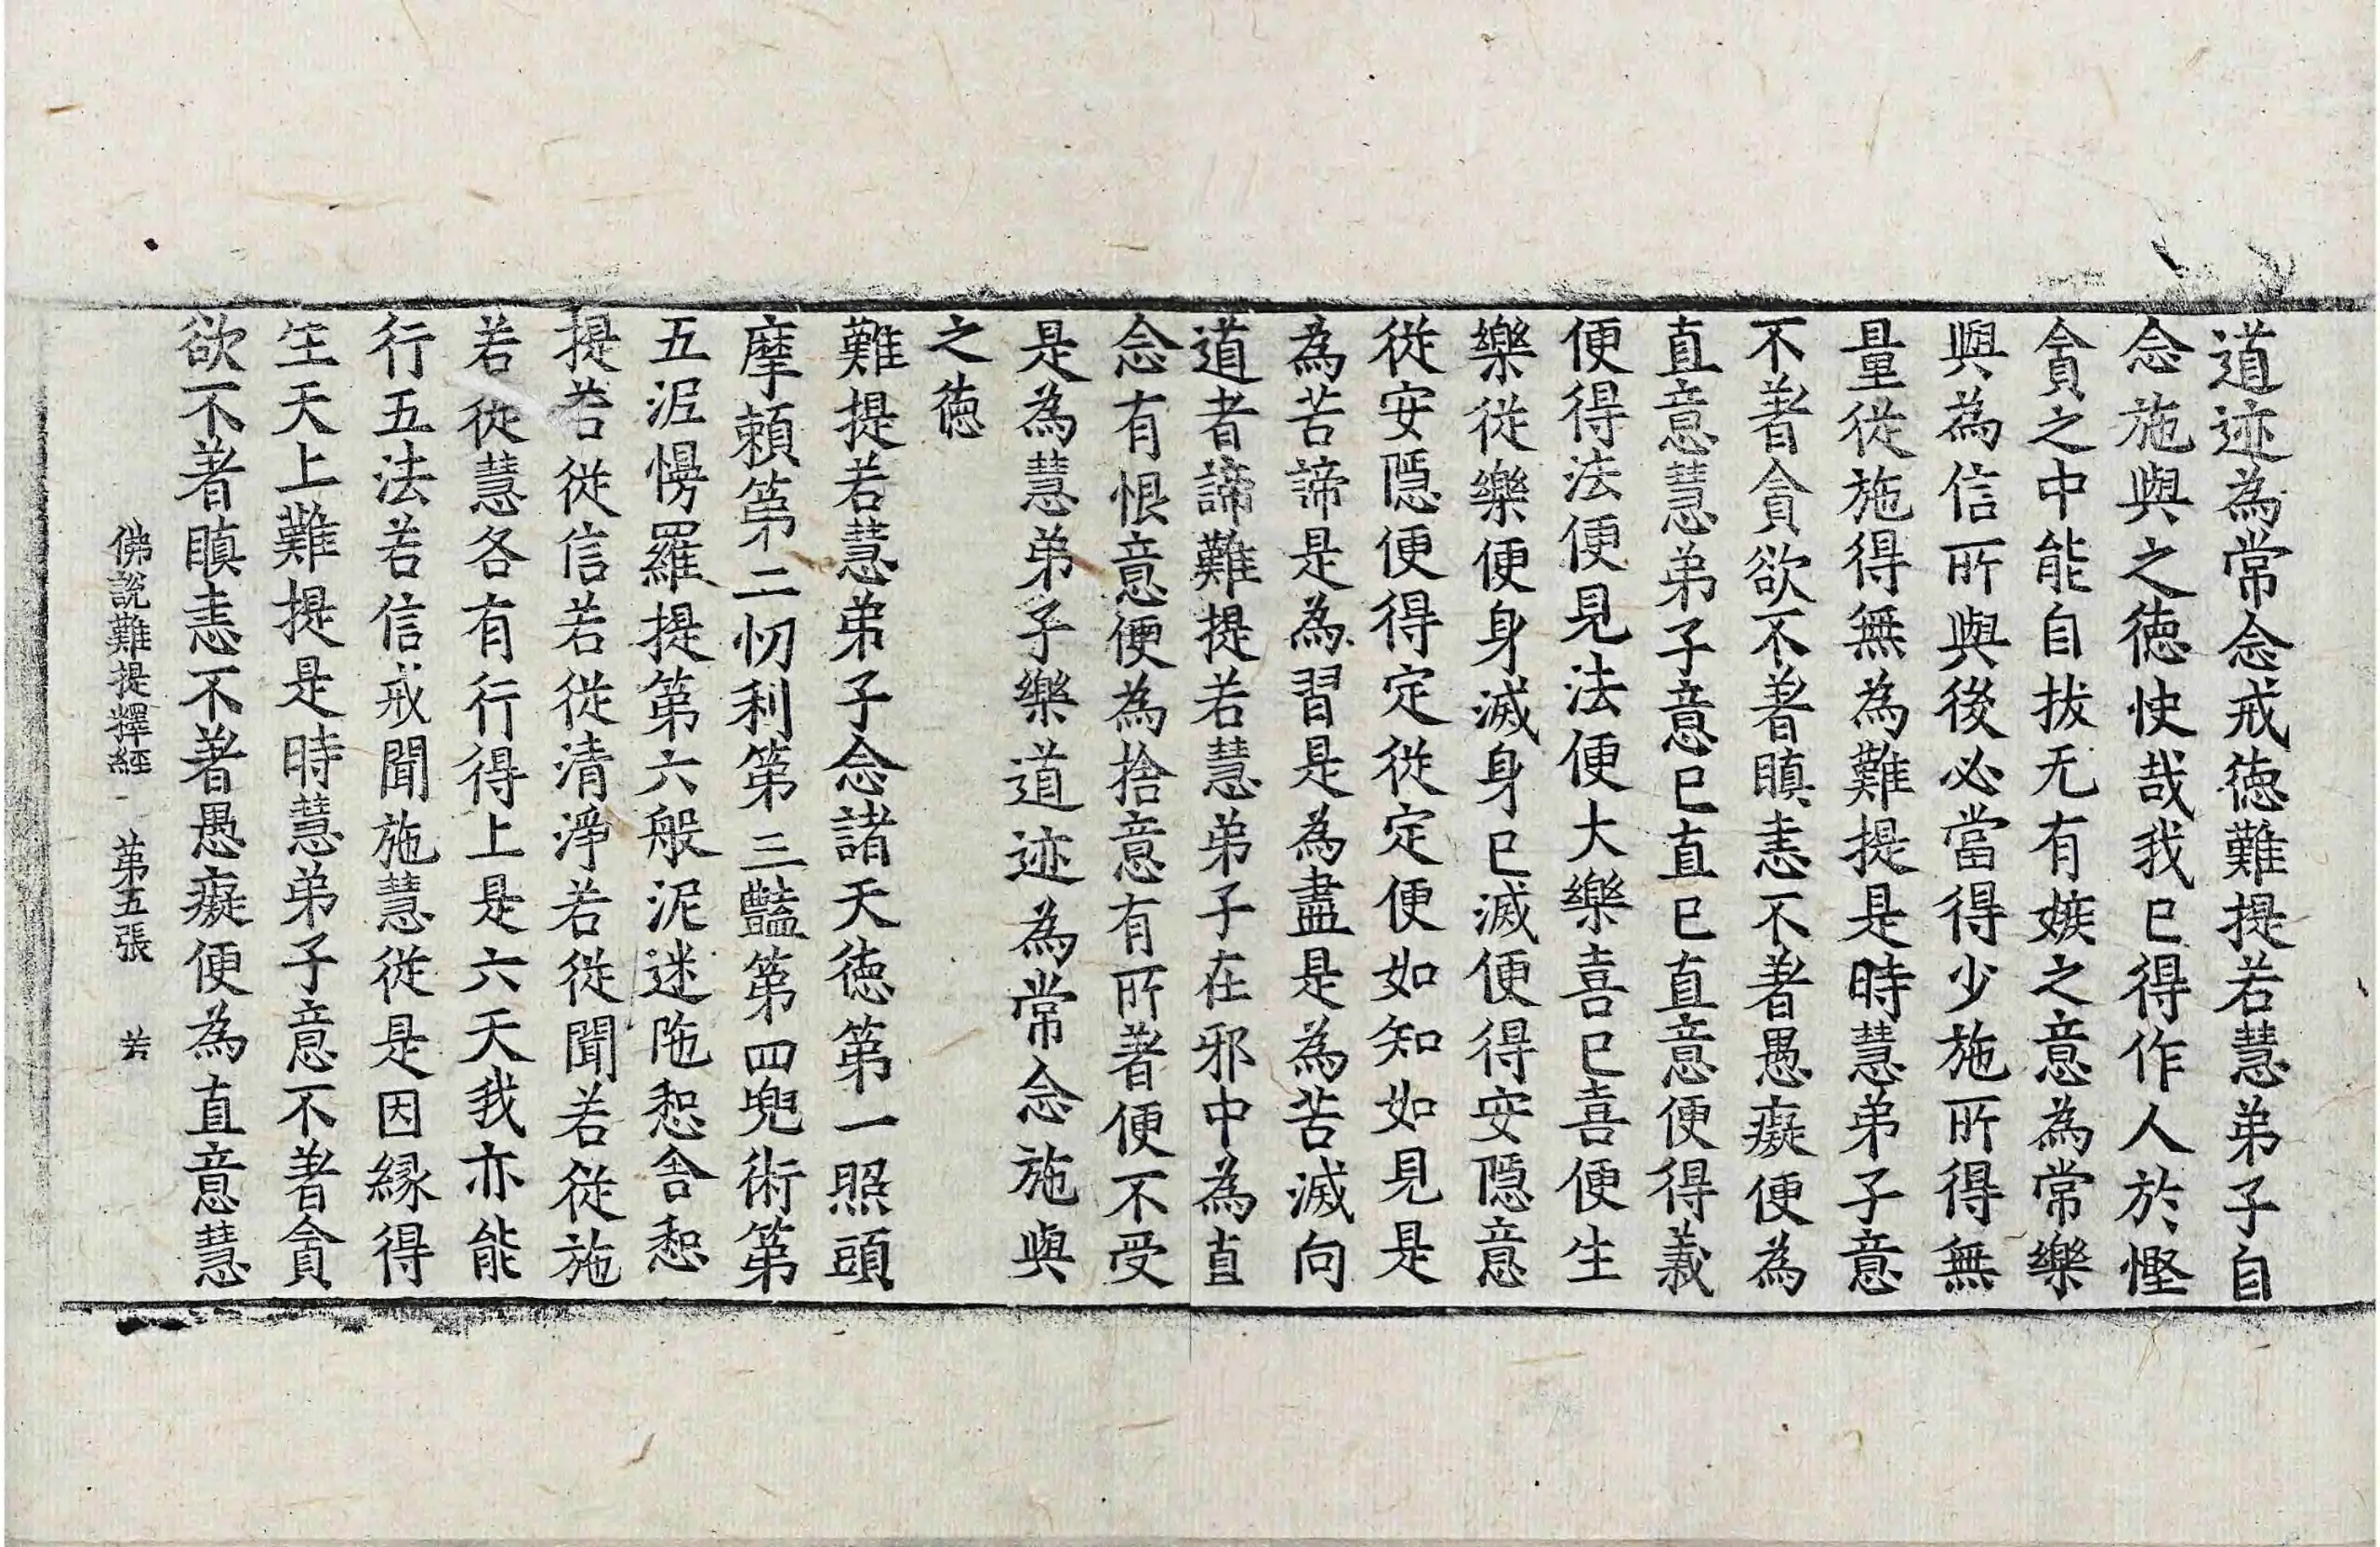 道迹為常念戒徳難提若慧弟子自
念施與之徳快哉我已得作人於慳
貪之中能自拔无有嫉之意為常樂
與為信所與後必當得少施所得無
量從施得無為難提是時慧弟子意
不著貪欲不著瞋恚不著愚癡便為
直意慧弟子意已直已直意便得義
便得法便見法便大樂喜已喜便生
樂從樂便身滅身已滅便得安隱意
從安隱便得定從定便如知如見是
為苦諦是為習是為盡是為苦滅向
道者諦難提若慧弟子在邪中為直
念有恨意便為捨意有所著便不受
是為慧弟子樂道迹為常念施與
之徳
難提若慧弟子念諸天徳第一照頭
摩頼第二忉利第三豔第四兜術第
五泥慢羅提第六般泥迷陁惒舍惒
提若從信若從清淨若從聞若從施
若從慧各有行得上是六天我亦能
行五法若信戒聞施慧從是因縁得
生天上難提是時慧弟子意不著貪
欲不著瞋恚不著愚癡便為直意慧
佛說難提釋經 第五張 若